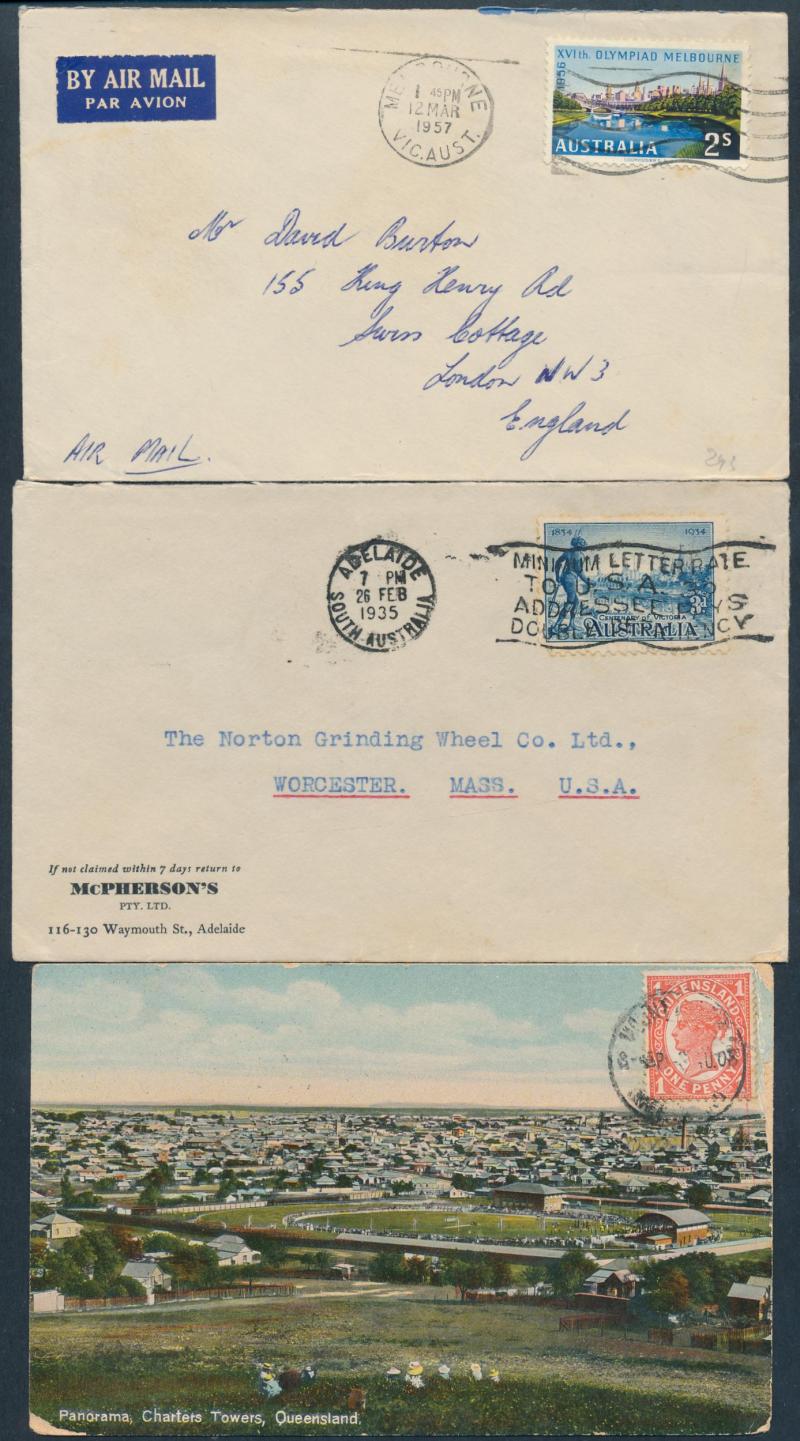 BY AIR MAIL
PAR AVION
MELBOURNE
1 45 PM
12 MAR
1957
VIC. AUST.
XVIth. OLYMPIAD MELBOURNE
1956
AUSTRALIA 2S
Mr David Burton
155 King Henry Rd
Swiss Cottage
London NW3
England
AIR MAIL.
ADELAIDE
7 PM
26 FEB
1935
SOUTH AUSTRALIA
1834 1934
MINIMUM LETTER RATE
TO U.S.A. 3D
ADDRESSEE PAYS
DOUBLE DEFICIENCY
3d
CENTENARY OF VICTORIA
AUSTRALIA
The Norton Grinding Wheel Co. Ltd.,
WORCESTER. MASS. U.S.A.
If not claimed within 7 days return to
McPHERSON'S
PTY. LTD.
116-130 Waymouth St., Adelaide
1 QUEENSLAND 1
SEP
08
1 ONE PENNY 1
Panorama, Charters Towers, Queensland.